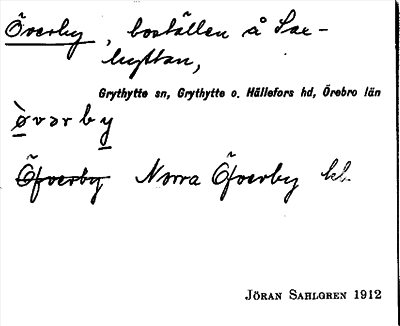 Överby, boställen å Sax-
hyttan,
Grythytte sn, Grythytte o. Hällefors hd, Örebro län
ø̀vərby
Öfverby Norra Öfverby kl.
JÖRAN SAHLGREN 1912